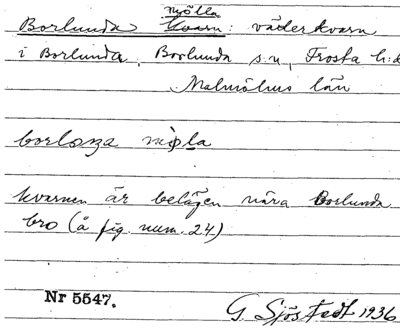 mölla
Borlunda kvarn: väderkvarn
i Borlunda, Borlunda s:n, Frosta h:d
Malmöhus län
borlona mөla
kvarnen är belägen nära Borlunda
bro (å fig. num. 24)
Nr 5547. G. Sjöstedt 1936